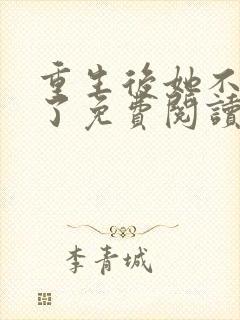 重生後她不
了免費閱讀
李青城